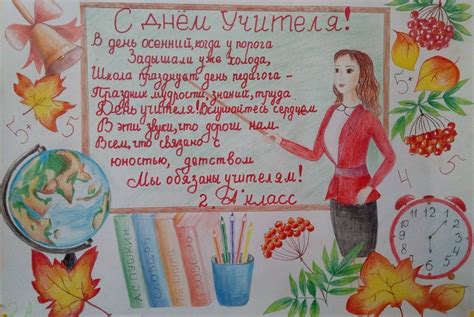 С Днём Учителя!
В день осенний, когда у порога
Задышали уже холода,
Школа празднует день педагога -
Праздник мудрости, знаний, труда
День учителя! Вслушайтесь сердцем
В эти звуки, что дороги нам.
Всем, что связано с
юностью, детством
Мы обязаны учителям!
2 "А" класс
5+
5
5+
5
4
А.С. ПУШКИН
СЛОВАРЬ
12
1
2
3
4
5
6
7
8
9
10
11